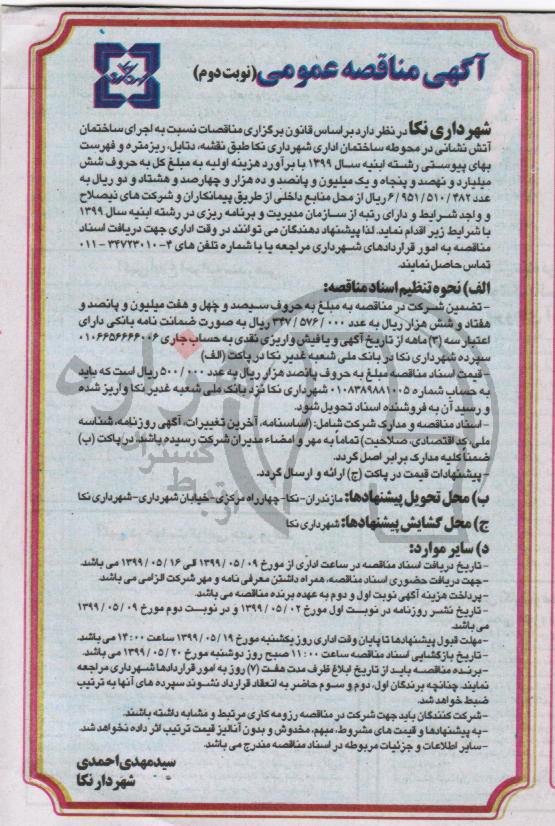 آگهی مناقصه عمومی (نوبت دوم)
شهرداری نکا در نظر دارد بر اساس قانون برگزاری مناقصات نسبت به اجرای ساختمان
آتش نشانی در محوطه ساختمان اداری شهرداری نکا طبق نقشه، دتایل، ریزمتره و فهرست
بهای پیوستی رشته ابنیه سال ۱۳۹۹ با برآورد هزینه اولیه به مبلغ کل به حروف شش
میلیارد و نهصد و پنجاه و یک میلیون و پانصد و ده هزار و چهارصد و هشتاد و دو ریال به
عدد ۶/۹۵۱/۵۱۰/۴۸۲ ریال از محل منابع داخلی از طریق پیمانکاران و شرکت های ذیصلاح
و واجد شرایط و دارای رتبه از سازمان مدیریت و برنامه ریزی در رشته ابنیه سال ۱۳۹۹
با شرایط زیر اقدام نماید. لذا پیشنهاد دهندگان می توانند در وقت اداری جهت دریافت اسناد
مناقصه به امور قراردادهای شهرداری مراجعه یا با شماره تلفن های ۴-۳۴۷۲۳۰۱۰-۰۱۱
تماس حاصل نمایند.
الف) نحوه تنظیم اسناد مناقصه:
-تضمین شرکت در مناقصه به مبلغ به حروف سیصد و چهل و هفت میلیون و پانصد و
هفتاد و شش هزار ریال به عدد ۳۴۷/۵۷۶/۰۰۰ ریال به صورت ضمانت نامه بانکی دارای
اعتبار سه (۳) ماهه از تاریخ آگهی و یا فیش واریزی نقدی به حساب جاری ۰۱۰۶۶۵۶۶۶۶۰۰۶
سپرده شهرداری نکا در بانک ملی شعبه غدیر نکا در پاکت (الف)
-قیمت اسناد مناقصه مبلغ به حروف پانصد هزار ریال به عدد ۵۰۰/۰۰۰ ریال است که باید
به حساب شماره ۰۱۰۸۳۸۹۸۸۱۰۰۵ شهرداری نکا نزد بانک ملی شعبه غدیر نکا واریز شده
و رسید آن به فروشنده اسناد تحویل شود.
-اسناد مناقصه و مدارک شرکت شامل: (اساسنامه، آخرین تغییرات، آگهی روزنامه، شناسه
ملی، کد اقتصادی، صلاحیت) تماماً به مهر و امضاء مدیران شرکت رسیده باشد. در پاکت (ب)
ضمناً کلیه مدارک برابر اصل گردد.
-پیشنهادات قیمت در پاکت (ج) ارائه و ارسال گردد.
ب) محل تحویل پیشنهادها: مازندران-نکا-چهارراه مرکزی-خیابان شهرداری-شهرداری نکا
ج) محل گشایش پیشنهادها: شهرداری نکا
د) سایر موارد:
-تاریخ دریافت اسناد مناقصه در ساعت اداری از مورخ ۱۳۹۹/۰۵/۰۹ الی ۱۳۹۹/۰۵/۱۶ می باشد.
-جهت دریافت حضوری اسناد مناقصه، همراه داشتن معرفی نامه و مهر شرکت الزامی می باشد.
-پرداخت هزینه آگهی نوبت اول و دوم به عهده برنده مناقصه می باشد.
-تاریخ نشر روزنامه در نوبت اول مورخ ۱۳۹۹/۰۵/۰۲ و در نوبت دوم مورخ ۱۳۹۹/۰۵/۰۹
می باشد.
-مهلت قبول پیشنهادها تا پایان وقت اداری روز یکشنبه مورخ ۱۳۹۹/۰۵/۱۹ ساعت ۱۴:۰۰ می باشد.
-تاریخ بازگشایی اسناد مناقصه ساعت ۱۱:۰۰ صبح روز دوشنبه مورخ ۱۳۹۹/۰۵/۲۰ می باشد.
-برنده مناقصه باید از تاریخ ابلاغ ظرف مدت هفت (۷) روز به امور قراردادها شهرداری مراجعه
نمایند. چنانچه برندگان اول، دوم و سوم حاضر به انعقاد قرارداد نشوند سپرده های آنها به ترتیب
ضبط خواهد شد.
-شرکت کنندگان باید جهت شرکت در مناقصه رزومه کاری مرتبط و مشابه داشته باشند.
-به پیشنهادها و قیمت های مشروط، مبهم، مخدوش و بدون آنالیز قیمت ترتیب اثر داده نخواهد شد.
-سایر اطلاعات و جزئیات مربوطه در اسناد مناقصه مندرج می باشد.
سیدمهدی احمدی
شهردار نکا